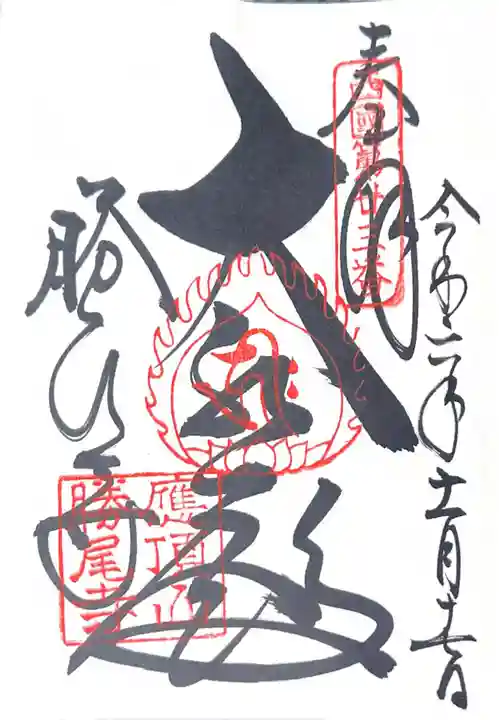 奉拝
西国第廿三番
令和二年十一月十一日
大悲殿
勝尾寺
應頂山
勝尾寺